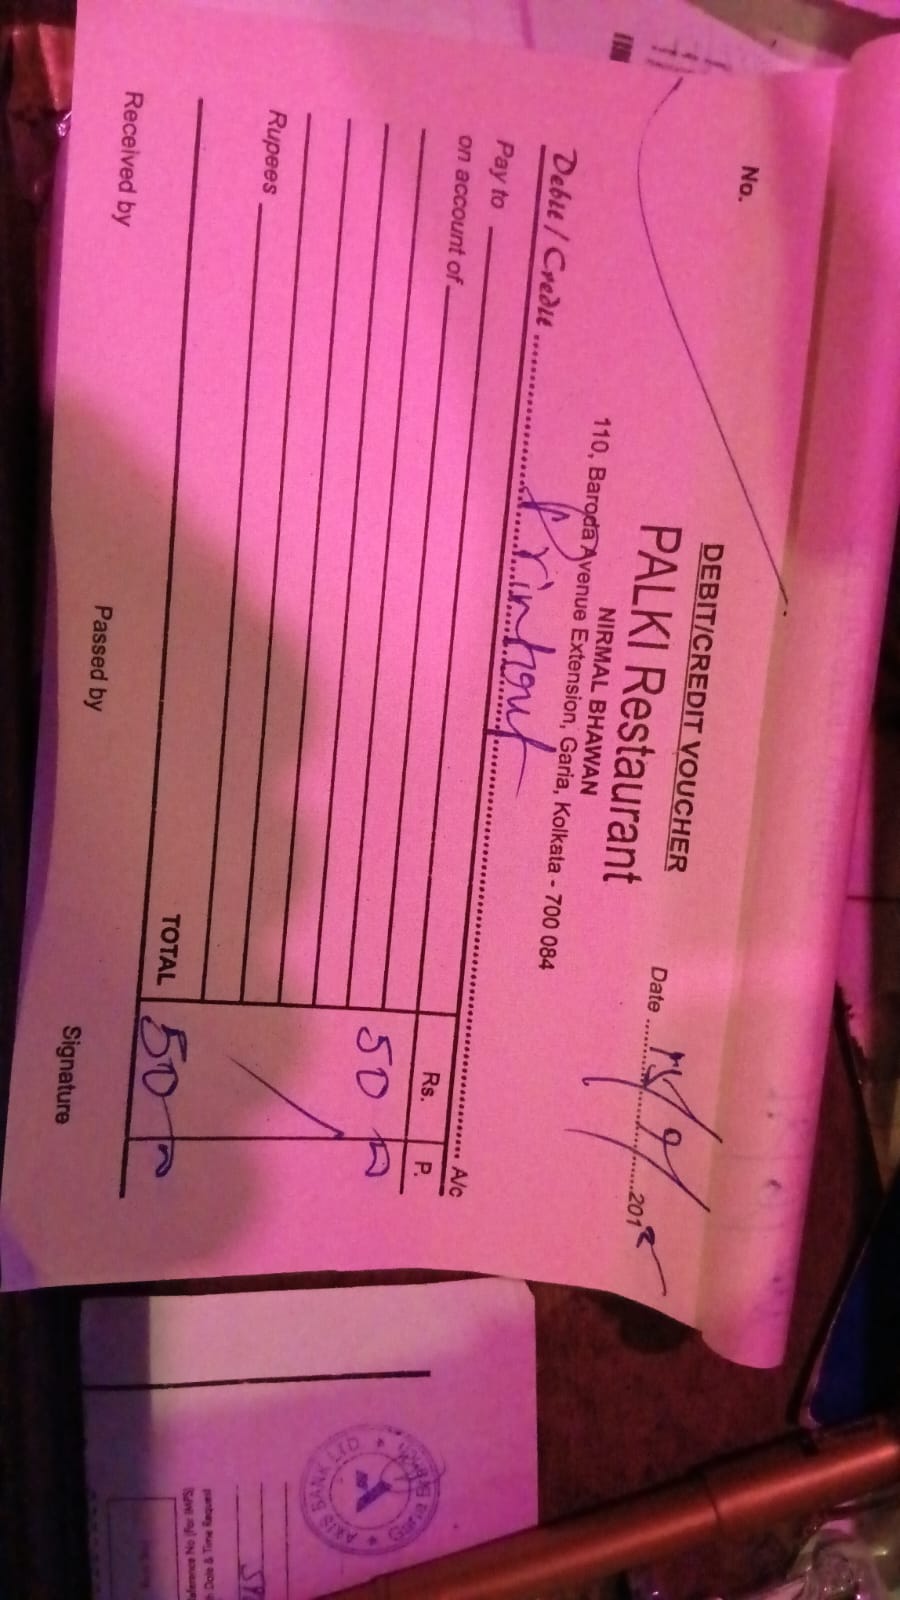 No.
DEBIT/CREDIT VOUCHER
PALKI Restaurant
NIRMAL BHAWAN
110, Baroda Avenue Extension, Garia, Kolkata - 700 084
Date ..................201
Debit / Credit ........ Printout ........ A/c
Pay to
on account of
Rs. P.
50
Rupees
TOTAL 50
Received by Passed by Signature
AXIS BANK LTD